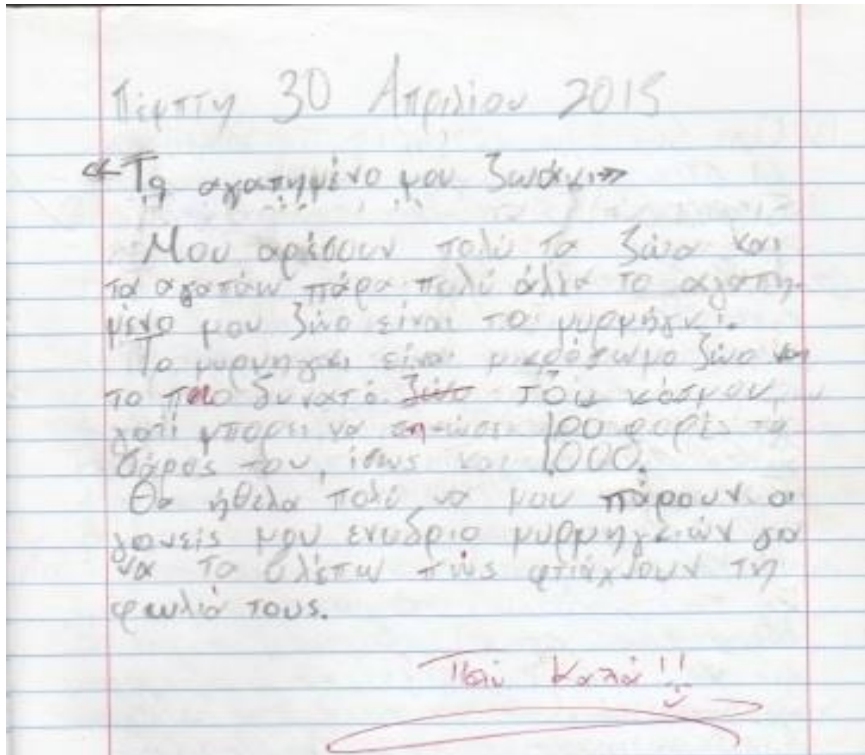 Πέμπτη 30 Απριλίου 2015
«Το αγαπημένο μου ζωάκι»
Μου αρέσουν πολύ τα ζώα και
τα αγαπάω πάρα πολύ άλλα το αγαπη-
μένο μου ζώο είναι το μυρμήγκι.
Το μυρμηγκι είναι μικρόσωμο ζώο και
το πιο δυνατό ζώο του κόσμου,
γατί μπορει να σηκώσει 100 φορές το
βάρος του, ίσως και 1000.
Θα ήθελα πολύ να μου πάρουν οι
γονείς μου ενυδριο μυρμηγκιών για
να το βλέπω πώς φτιάχνουν τη
φωλιά τους.
Πολύ Καλά!!